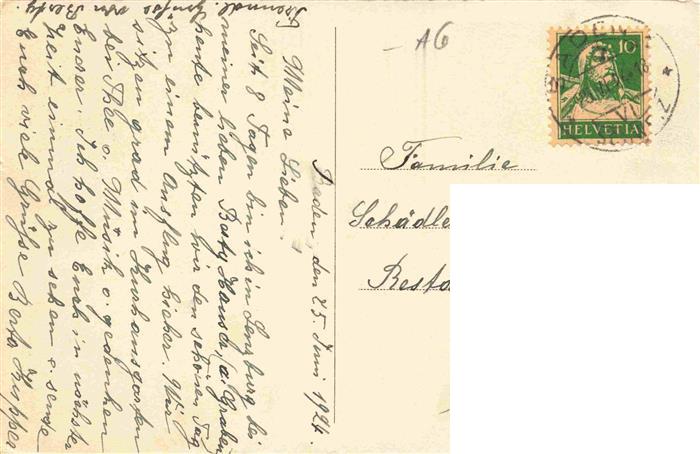 Baden, den 25. Juni 1924.
Meine Lieben.
Seit 8 Tagen bin ich in Lenzburg bei
meiner lieben Berty Hausch, (a. Graben)
heute benützten wir den schönen Tag
zu einem Ausflug hieher. Wir
sitzen grad im Kurhausgarten
bei Thee & Musik & gedenken
Euser. Ich hoffe Euch in nächster
Zeit einmal zu sehen & sende
Euch viele Grüsse Berta
Freundl. Grüsse von Berty.
A6
BADEN
SCHWEIZ
10
HELVETIA
Familie
Schädle
Resta